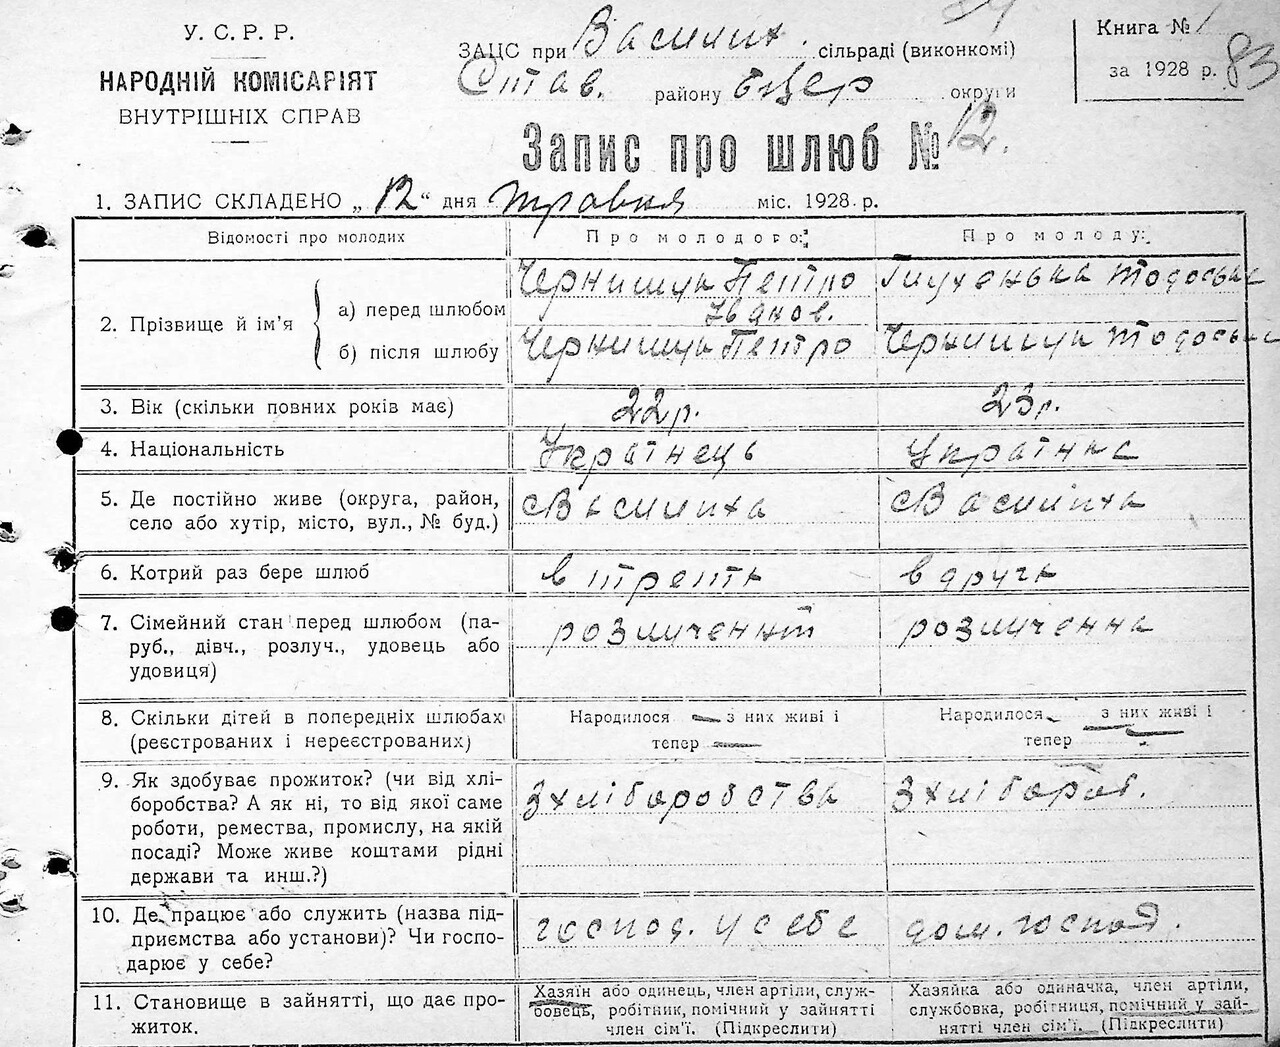 У. С. Р. Р.
НАРОДНІЙ КОМІСАРІЯТ
ВНУТРІШНІХ СПРАВ
ЗАЦС при Василих. сільраді (виконкомі)
Став. району БЦер округи
Книга №
за 1928 р. 83
Запис про шлюб № 12.
1. ЗАПИС СКЛАДЕНО „12“ дня травня міс. 1928 р.
Відомості про молодих
Про молодого:
Про молоду:
2. Прізвище й ім’я
а) перед шлюбом
Чернишук Петро
Іванов.
Тодоська
б) після шлюбу
Чернишук Петро
Чернишук Тодоська
3. Вік (скільки повних років має)
22р.
23р.
4. Національність
Українець
Українка
5. Де постійно живе (округа, район,
село або хутір, місто, вул., № буд.)
с Василиха
с Василиха
6. Котрий раз бере шлюб
в трете
в друге
7. Сімейний стан перед шлюбом (па-
руб., дівч., розлуч., удовець або
удовиця)
розлучений
розлученна
8. Скільки дітей в попередніх шлюбах
(реєстрованих і нереєстрованих)
Народилося — з них живі і
тепер —
Народилося — з них живі і
тепер —
9. Як здобуває прожиток? (чи від хлі-
боробства? А як ні, то від якої саме
роботи, ремества, промислу, на якій
посаді? Може живе коштами рідні
держави та инш.?)
З хліборобства
З хлібороб.
10. Де працює або служить (назва під-
приємства або установи)? Чи госпо-
дарює у себе?
господ. у себе
дом. господ.
11. Становище в зайнятті, що дає про-
житок.
Хазяїн або одинець, член артіли, служ-
бовець, робітник, помічний у зайнятті
член сім’ї. (Підкреслити)
Хазяйка або одиначка, член артіли,
службовка, робітниця, помічний у зай-
нятті член сім’ї. (Підкреслити)